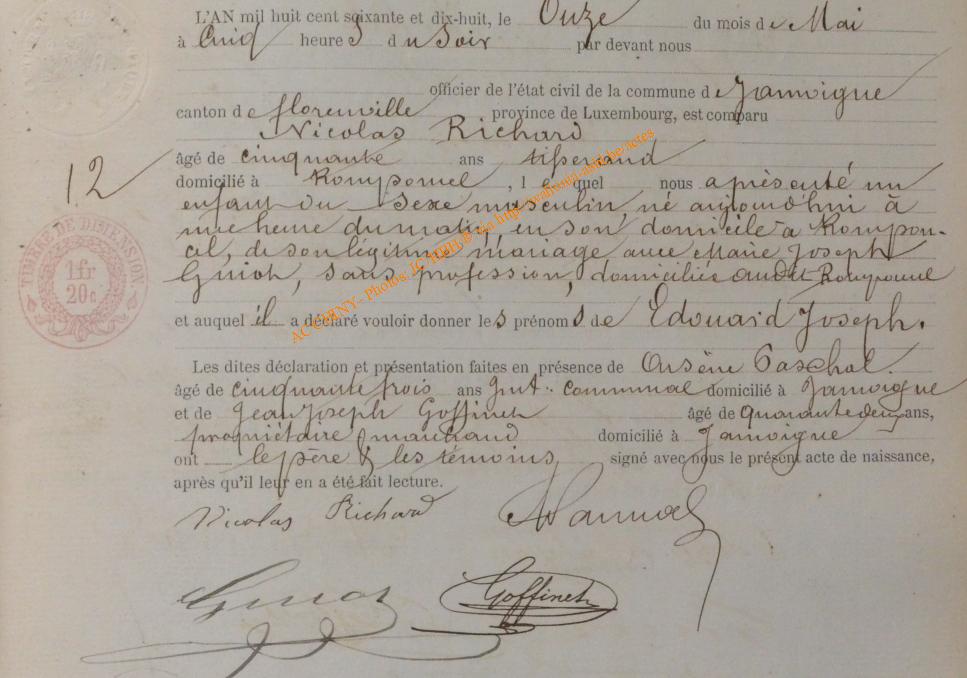 L'AN mil huit cent soixante et dix-huit, le Onze du mois de Mai
à Cinq heures du Soir par devant nous
officier de l'état civil de la commune de Jamoigne
canton de florenville province de Luxembourg, est comparu
Nicolas Richard
12
âgé de cinquante ans tisserand
domicilié à Romponcel, lequel nous a présenté un
enfant du sexe masculin, né aujourd'hui à
une heure du matin, en son domicile à Rompon-
cel, de son légitime mariage avec Marie Joseph
Guiot, sans profession, domiciliée audit Romponcel
TIMBRE DE DIMENSION
1 fr
20 c
et auquel il a déclaré vouloir donner les prénoms de Edouard Joseph.
Les dites déclaration et présentation faites en présence de Arsène Paschal
âgé de cinquante trois ans communal domicilié à Jamoigne
et de Jean Joseph Goffinet âgé de quarante deux ans,
propriétaire & marchand domicilié à Jamoigne
ont le père & les témoins signé avec nous le présent acte de naissance,
après qu'il leur en a été fait lecture.
Nicolas Richard
Goffinet